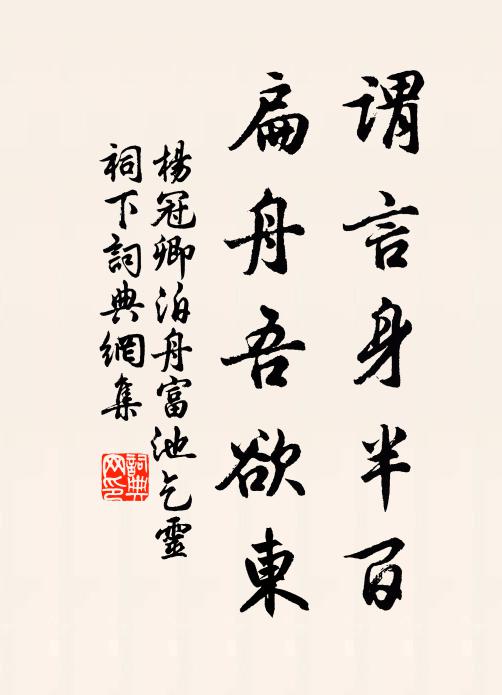 謂言身半百
扁舟吾欲東
楊冠卿泊舟富池乞靈
祠下詞典網集
詞典
网印